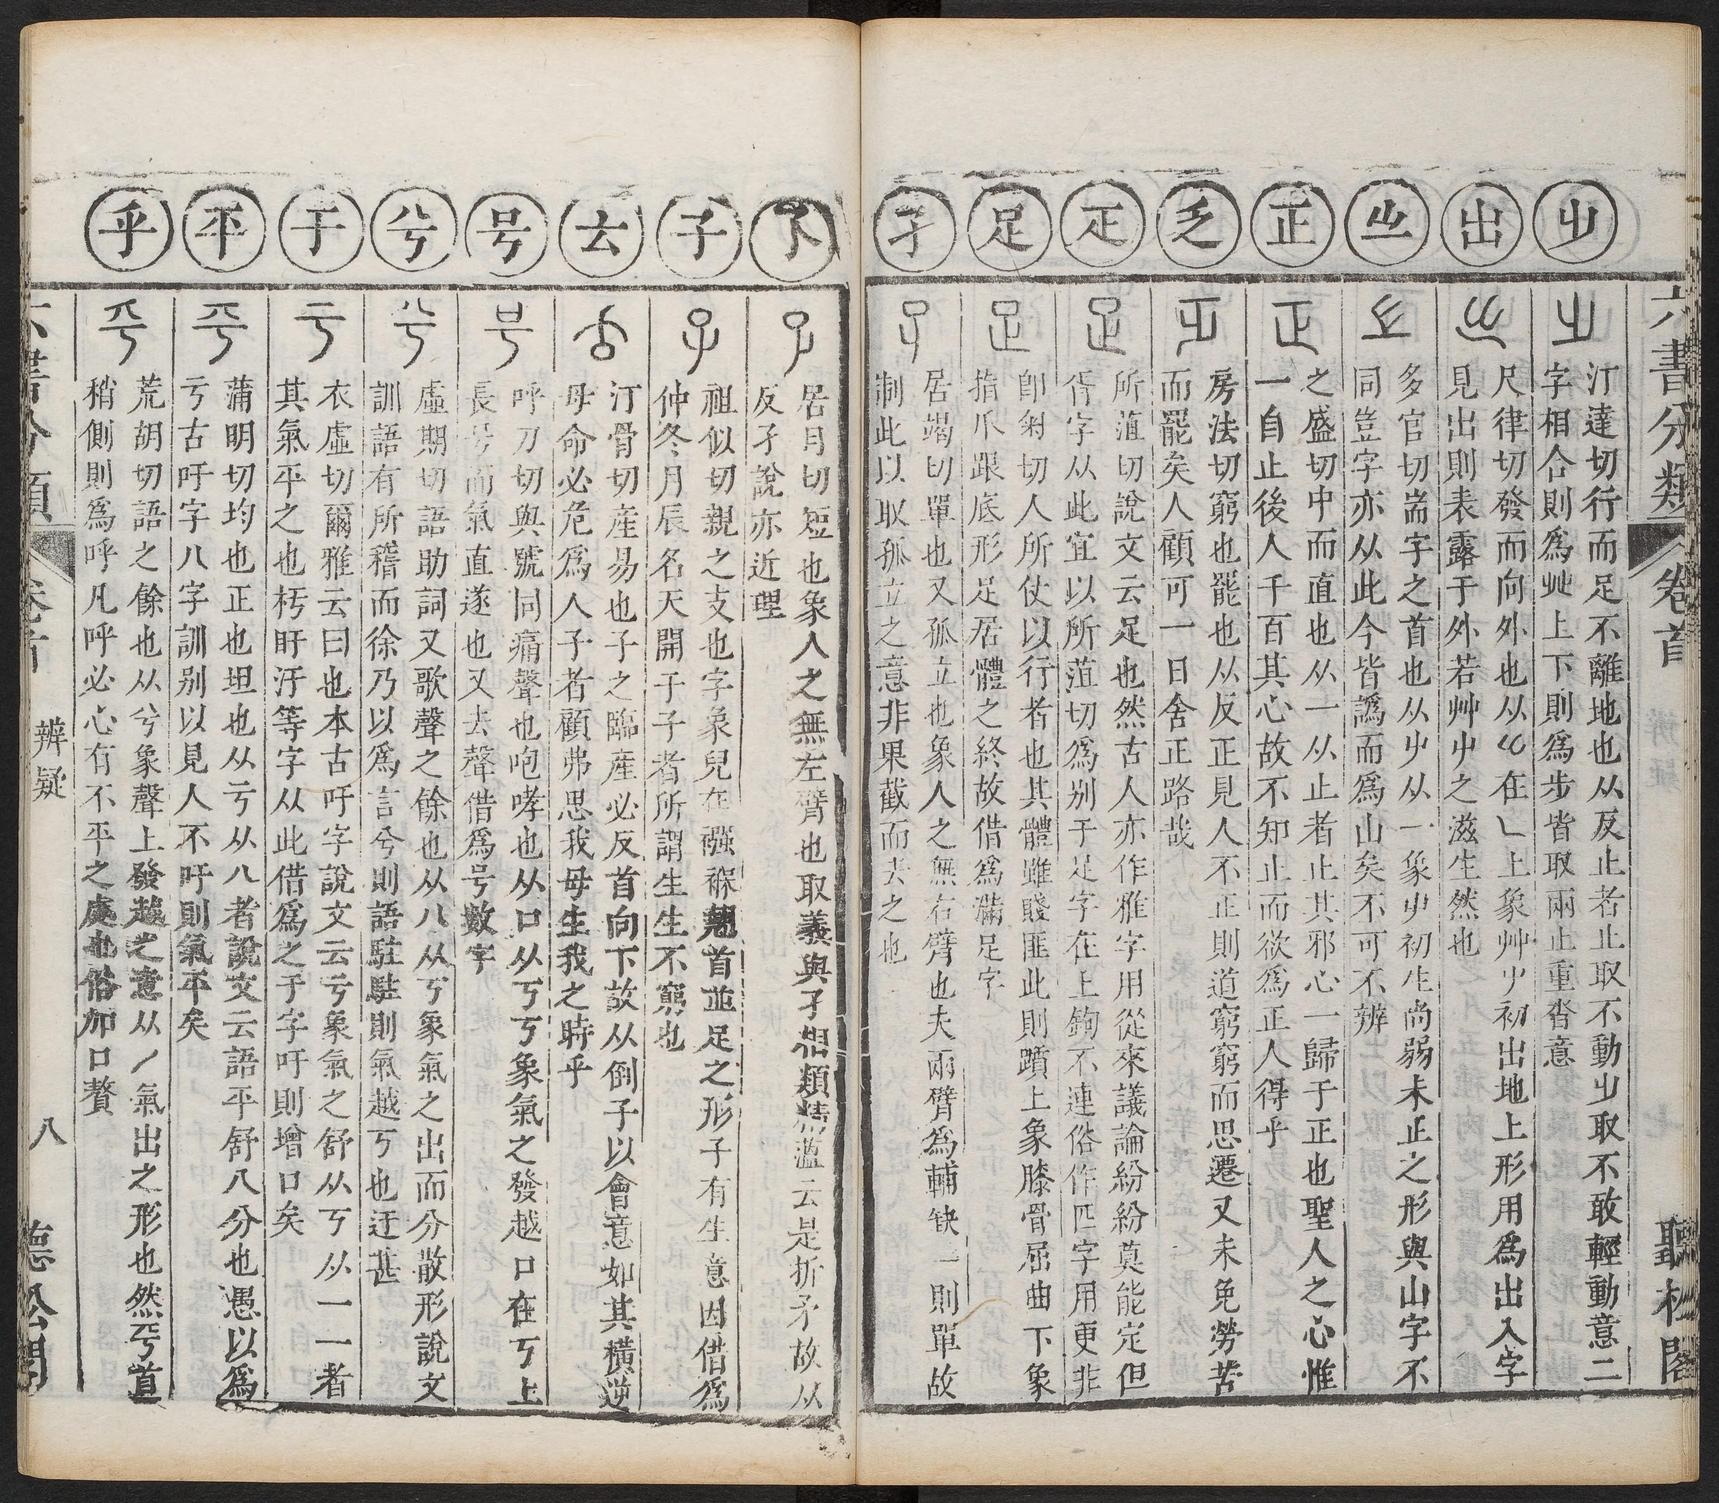 六書分類 卷首 聽松閣
𣥂 出 㞢 正 乏 疋 足 孑
汀達切行而足不離地也从反止者止取不動𣥂取不敢輕動意二
字相合則爲艸上下則爲步皆取兩止重沓意
尺律切發而向外也从𠃊在𠃊上象艸屮初出地上形用爲出入字
見出則表露于外若艸屮之滋生然也
多官切耑字之首也从屮从一象屮初生尚弱未正之形與山字不
同豈字亦从此今皆譌而爲山矣不可不辨
之盛切中而直也从一从止者止其邪心一歸于正也聖人之心惟
一自止後人千百其心故不知止而欲爲正人得乎
房法切窮也罷也从反正見人不正則道窮窮而思遷又未免勞苦
而罷矣人顧可一日舍正路哉
所菹切說文云足也然古人亦作雅字用從來議論紛紛莫能定但
胥字从此宜以所菹切爲别于足字在上鉤不連俗作匹字用更非
卽匊切人所仗以行者也其體雖賤匪此則躓上象膝骨屈曲下象
指爪跟底形足居體之終故借爲滿足字
居竭切單也又孤立也象人之無右臂也夫兩臂爲輔缺一則單故
制此以取孤立之意非果截而去之也
孓 子 𠫓 号 兮 于 平 乎
居月切短也象人之無左臂也取義與孑相類精溫云是折矛故从
反孑說亦近理
祖似切親之支也字象兒在襁褓裏首並足之形子有生意因借爲
仲冬月辰名天開于子者所謂生生不窮也
汀骨切産易也子之臨産必反首向下故从倒子以會意如其橫逆
母命必危爲人子者顧弗思我母生我之時乎
呼刀切與號同痛聲也咆哮也从口从丂丂象氣之發越口在丂上
長号而氣直遂也又去聲借爲号數字
虛期切語助詞又歌聲之餘也从八从丂象氣之出而分散形說文
訓語有所稽而徐乃以爲言兮則語駐駐則氣越丂也迂甚
衣虛切爾雅云曰也本古吁字說文云亏象氣之舒从丂从一一者
其氣平之也杇盱汙等字从此借爲之于字吁則增口矣
蒲明切均也正也坦也从亏从八者說文云語平舒八分也愚以爲
亏古吁字八字訓别以見人不吁則氣平矣
荒胡切語之餘也从兮象聲上發越之意从丿氣出之形也然兮直
稍側則爲呼凡呼必心有不平之處也俗加口贅
六書分類 卷首 辨疑 八 聽松閣